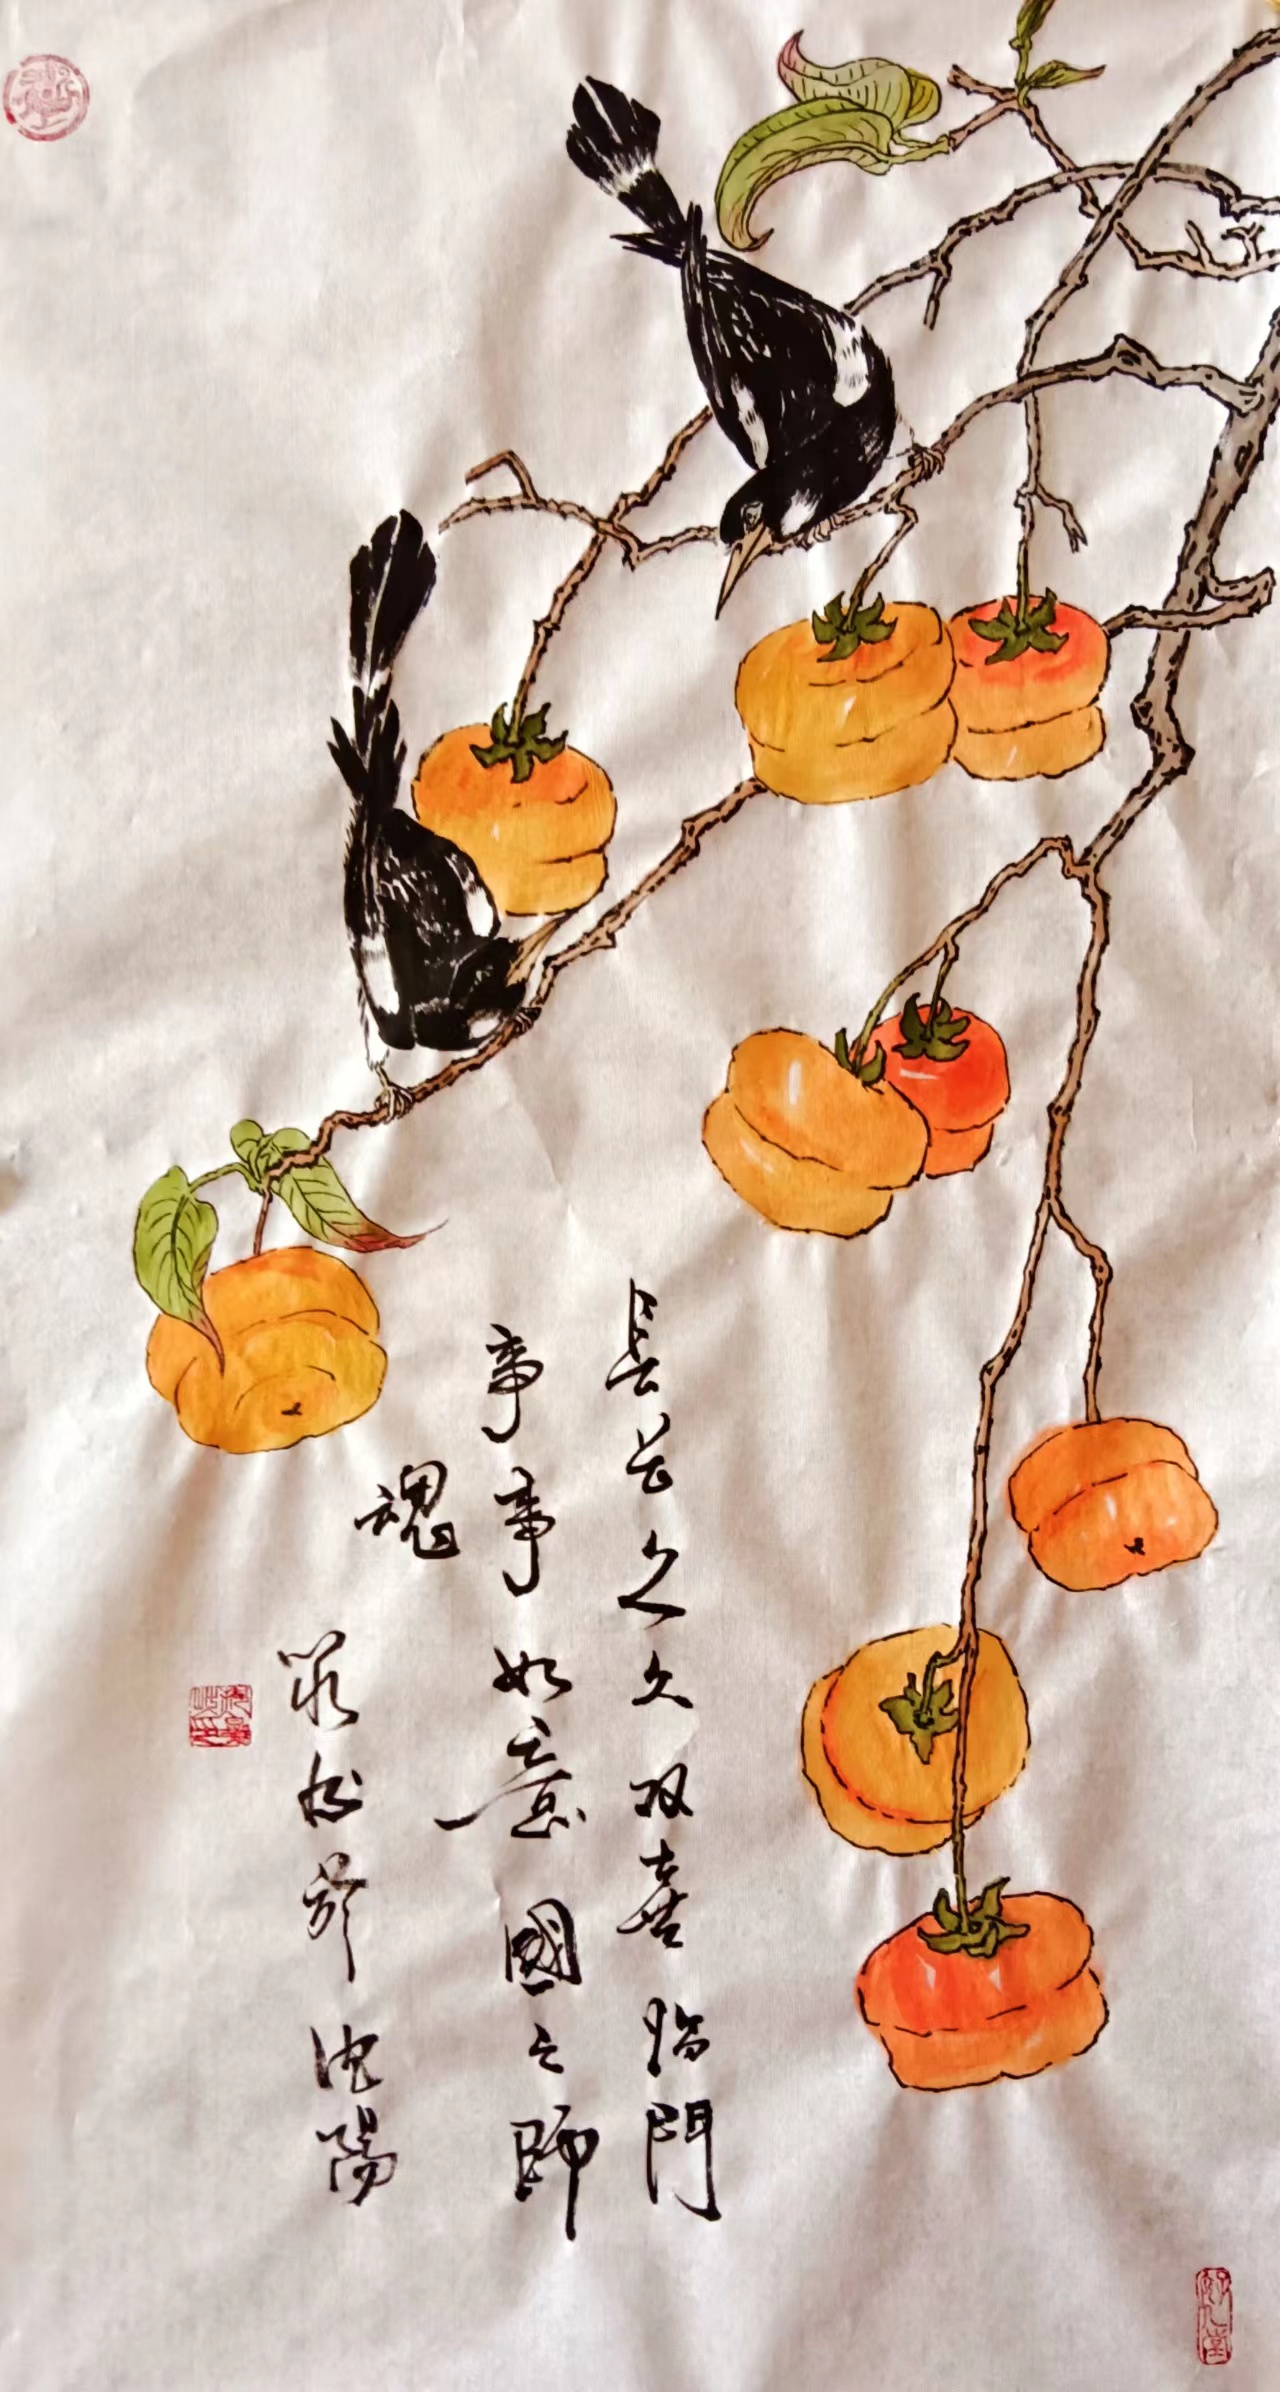 長長久久双喜臨門
事事如意國之師
魂
於沈陽